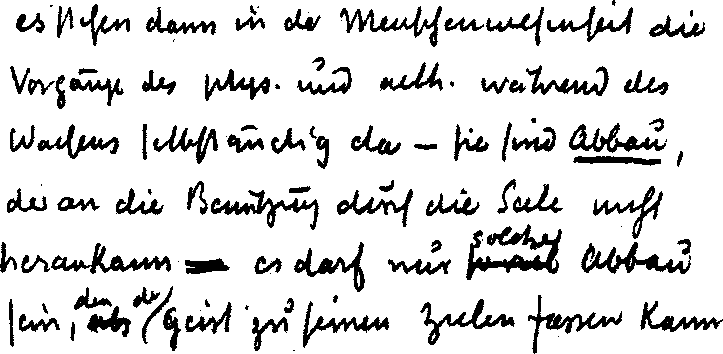 es stehen dann in der Menschenwesenheit die
Vorgänge des phys. und aeth. während des
Wachens selbständig da – sie sind Abbau,
der an die Benützung durch die Seele nicht
herankann – es darf nur solcher Abbau
sein, den der Geist zu seinen Zielen fassen kann